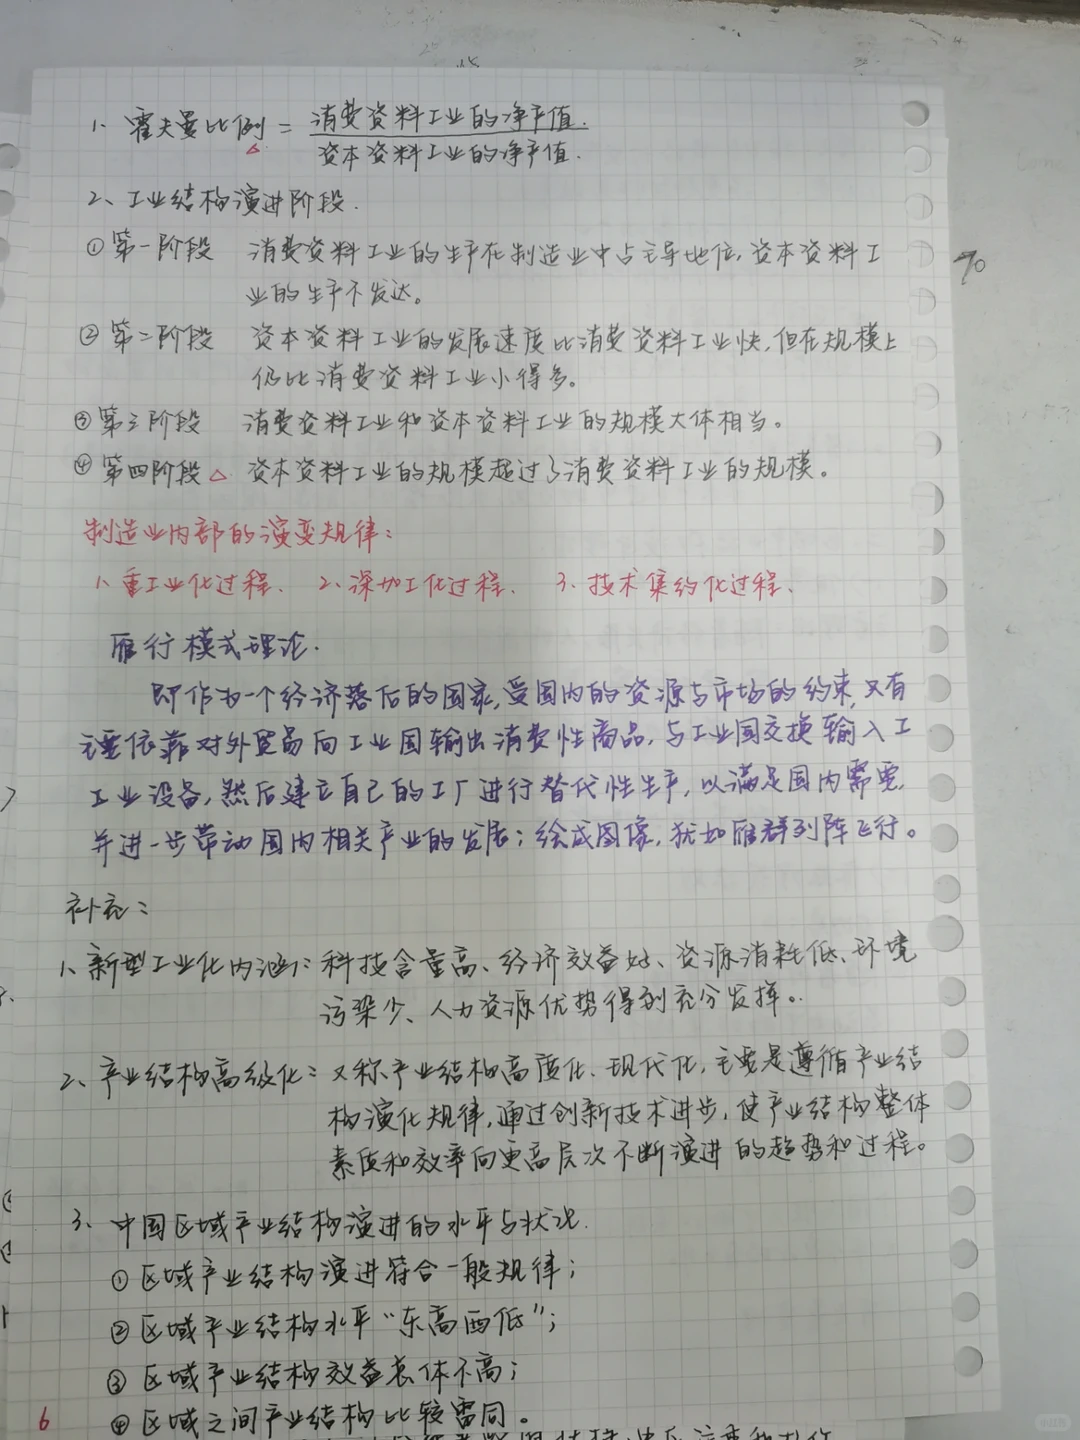 1、霍夫曼比例 = 消费资料工业的净产值.
资本资料工业的净产值.
2、工业结构演进阶段.
①第一阶段 消费资料工业的生产在制造业中占主导地位,资本资料工
业的生产不发达。
②第二阶段 资本资料工业的发展速度比消费资料工业快,但在规模上
仍比消费资料工业小得多。
③第三阶段 消费资料工业和资本资料工业的规模大体相当。
④第四阶段△ 资本资料工业的规模超过了消费资料工业的规模。
制造业内部的演变规律:
1、重工业化过程、 2、深加工化过程、 3、技术集约化过程、
雁行模式理论.
即作为一个经济落后的国家,受国内的资源与市场的约束,又有
依靠对外贸易向工业国输出消费性商品,与工业国交换输入工
工业设备,然后建立自己的工厂进行替代性生产,以满足国内需要,
并进一步带动国内相关产业的发展;绘成图像,犹如雁群列阵飞行。
补充:
1、新型工业化内涵:科技含量高、经济效益好、资源消耗低、环境
污染少、人力资源优势得到充分发挥。
2、产业结构高级化:又称产业结构高度化、现代化,主要是遵循产业结
构演化规律,通过创新技术进步,使产业结构整体
素质和效率向更高层次不断演进的趋势和过程。
3、中国区域产业结构演进的水平与状况.
①区域产业结构演进符合一般规律;
②区域产业结构水平“东高西低”;
③区域产业结构效益总体不高;
④区域之间产业结构比较雷同。
6
70
小红书